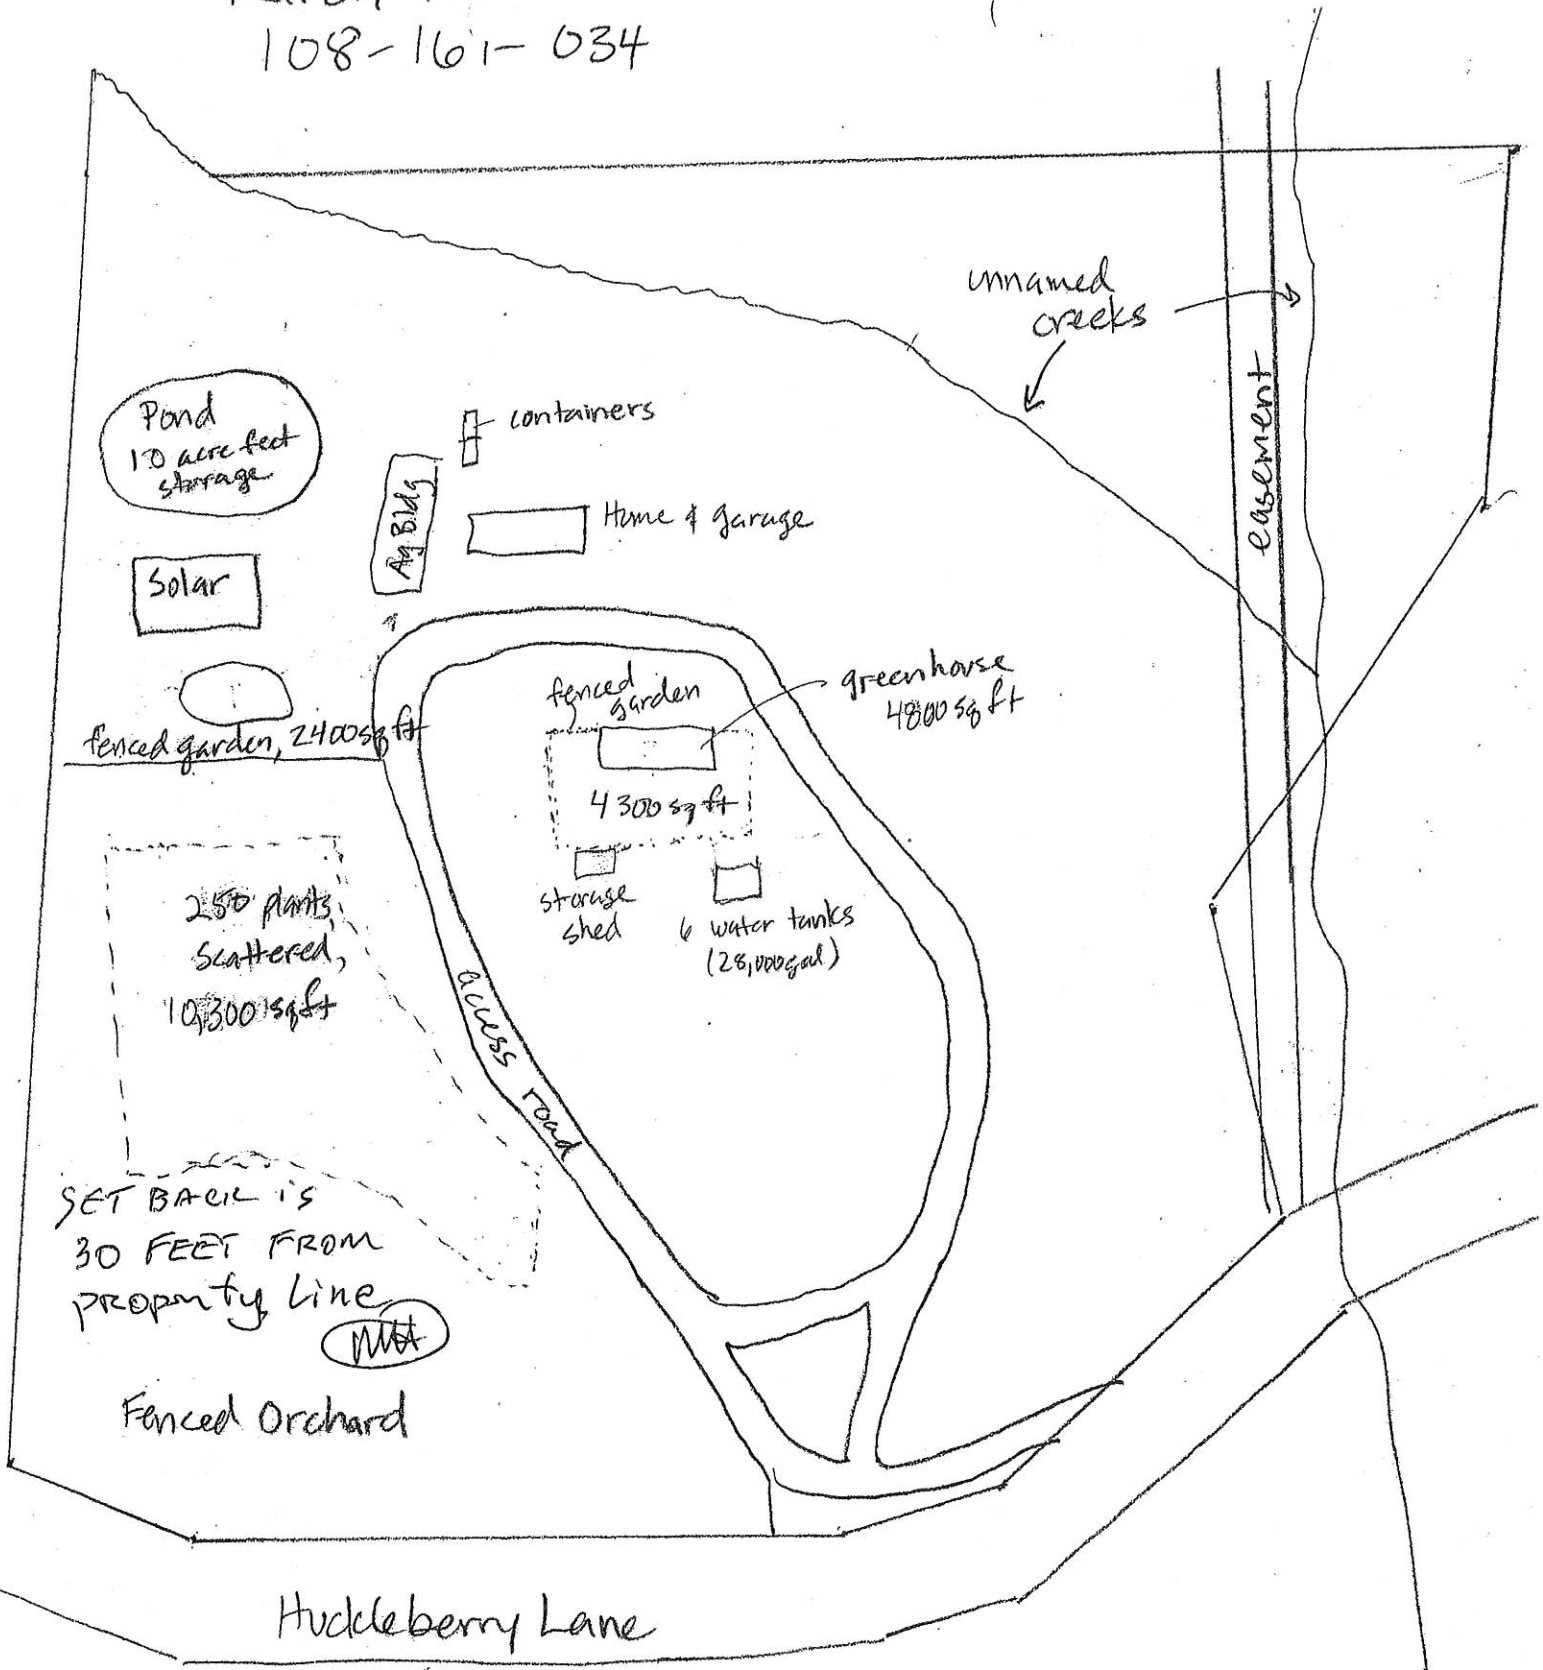 108-161-034
unnamed
creeks
easement
Pond
1.0 acre feet
storage
containers
Ag Bldg
Home & garage
Solar
fenced garden, 2400 sq ft
fenced
garden
greenhouse
4800 sq ft
4300 sq ft
storage
shed
6 water tanks
(28,000gal)
250 plants,
scattered,
10,300 sq ft
access road
SET BACK is
30 FEET FROM
property Line
Fenced Orchard
Huckleberry Lane